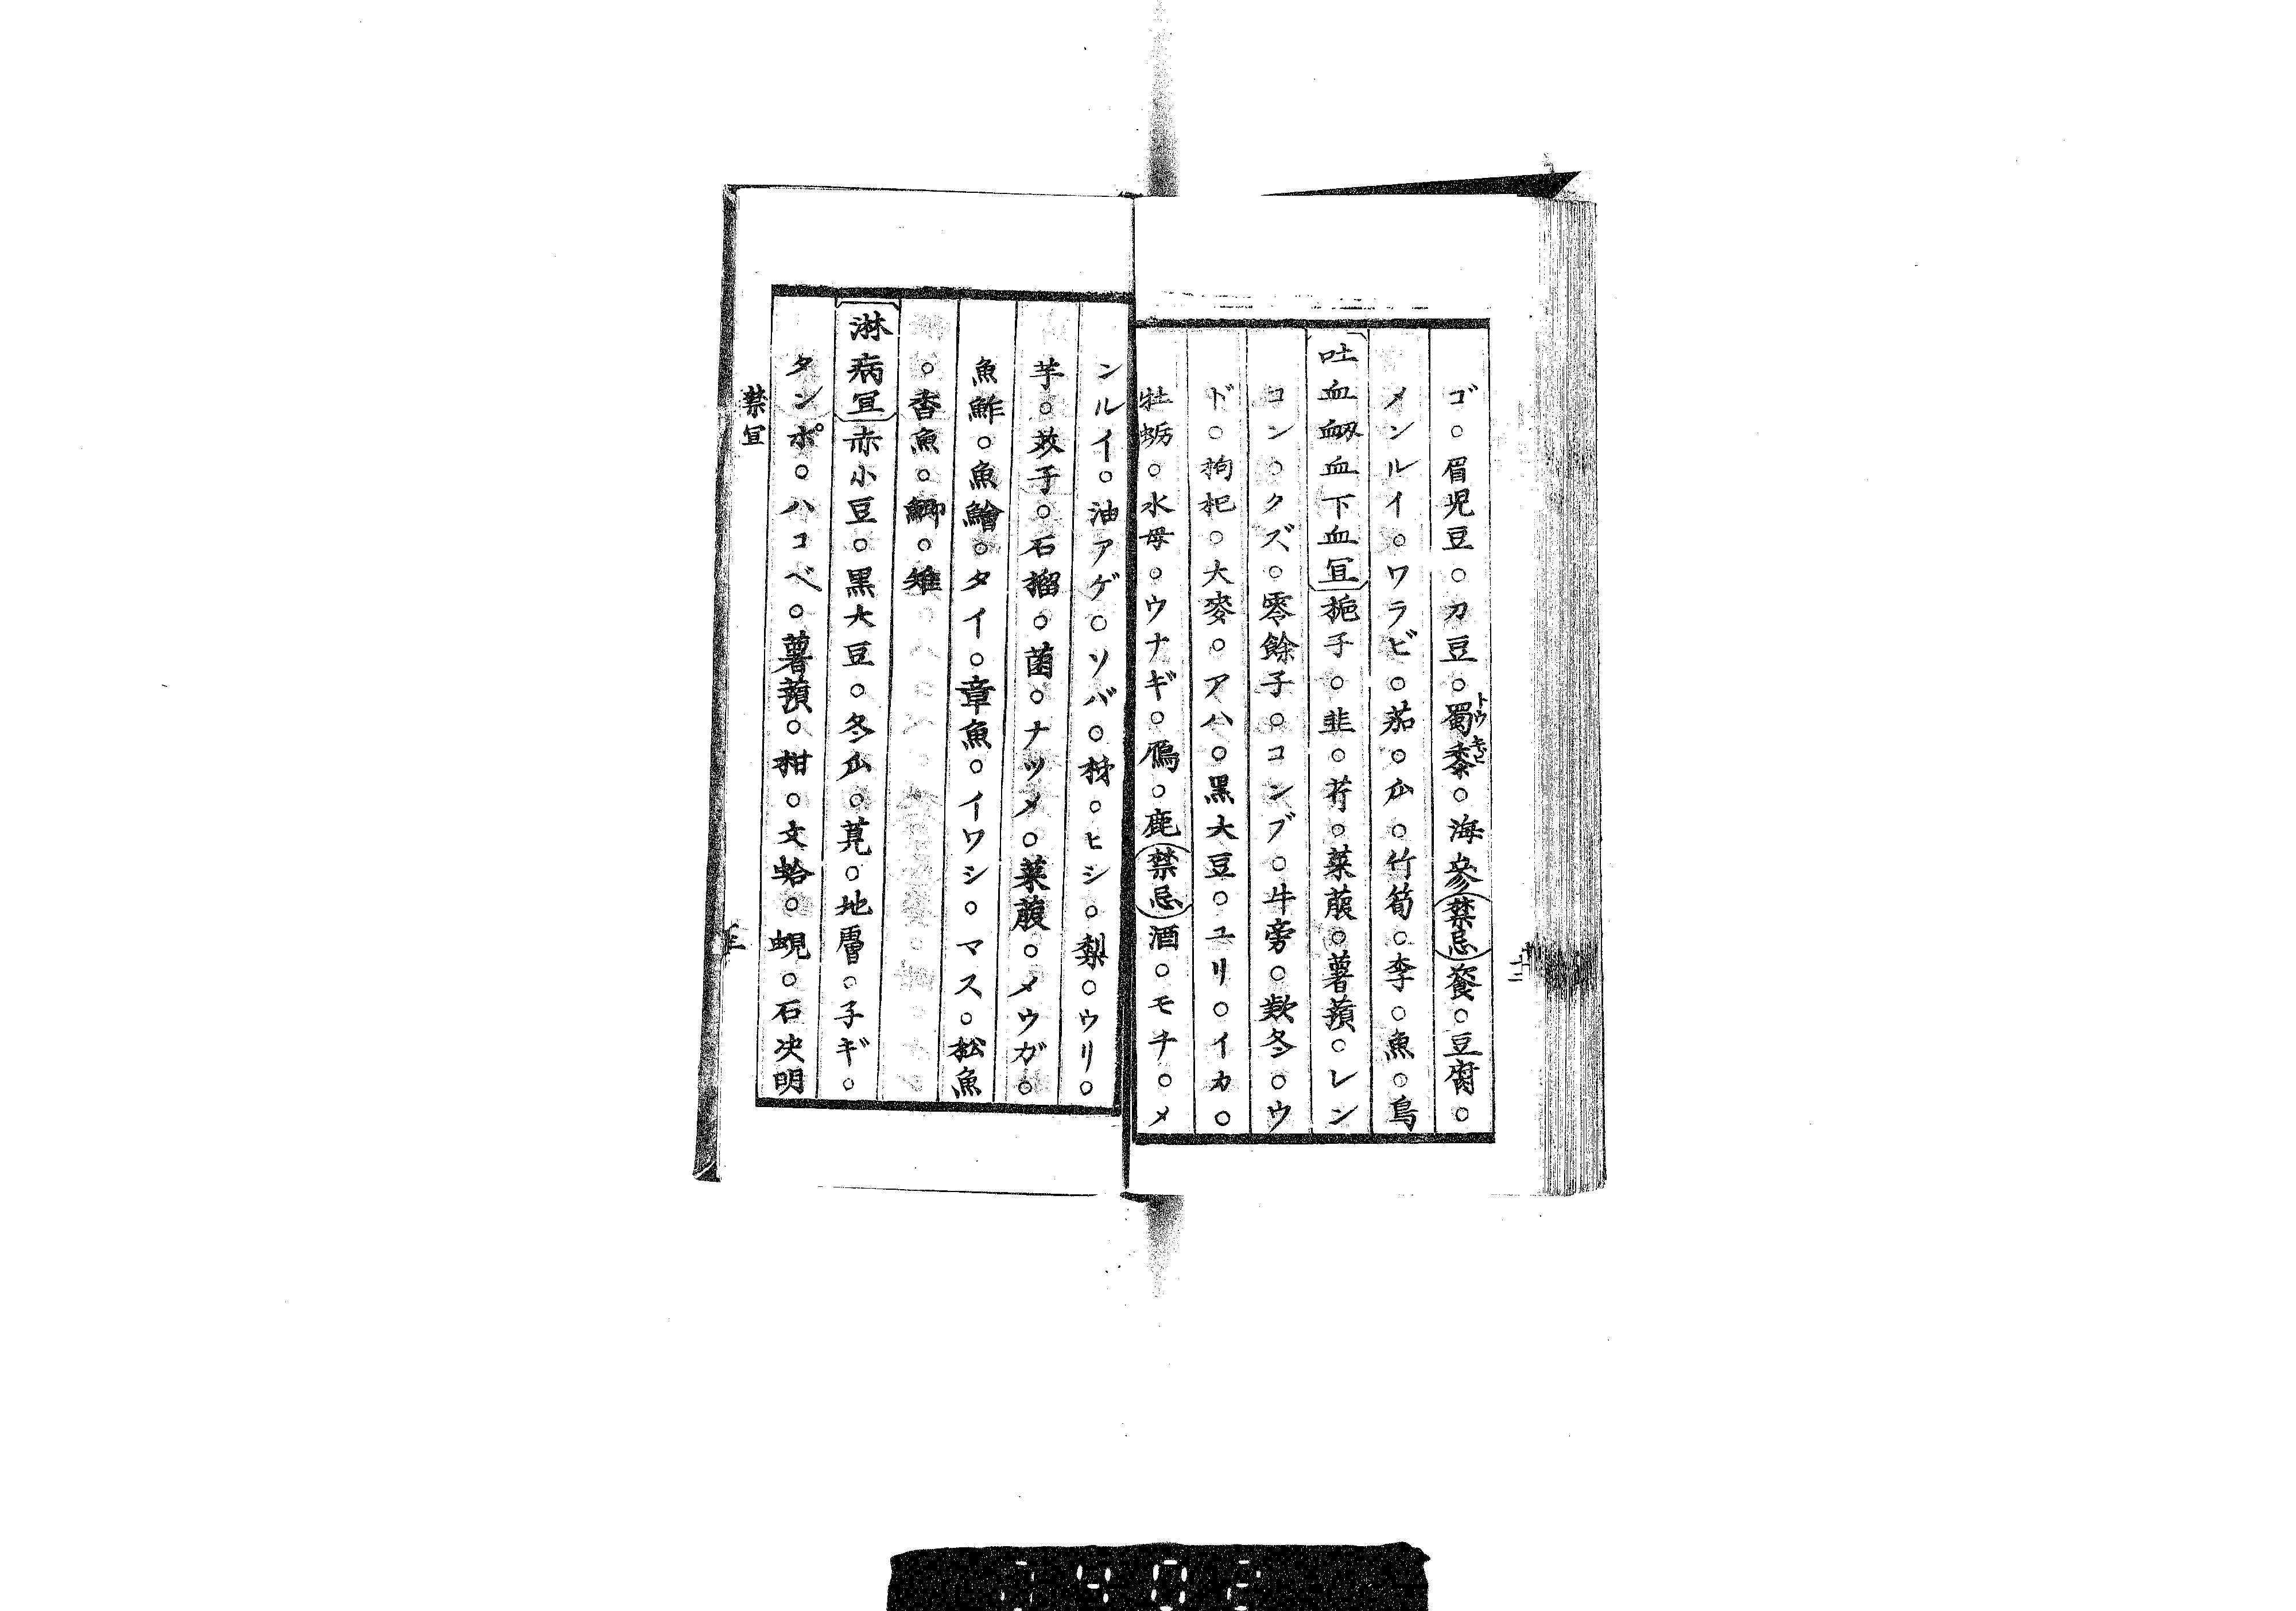 ゴ○眉児豆○刀豆○蜀黍○海參禁忌餈○豆腐○
トウキビ
メンルイ○ワラビ○茄○瓜○竹筍○李○魚○鳥
吐血衂血下血宜梔子○韭○荇○菜菔○薯蕷○レン
コン○クズ○零餘子○コンブ○牛旁○欵冬○ウ
ド○拘杞○大麥○アハ○黒大豆○ユリ○イカ○
牡蛎○水母○ウナギ○鴈○鹿禁忌酒○モチ○メ
ンルイ○油アゲ○ソバ○柹○ヒシ○梨○ウリ○
芋○茨子○石榴○菌○ナツメ○菜菔○メウガ○
魚鮓○魚鱠○タイ○章魚○イワシ○マス○松魚
○香魚○鯽○雉
淋病宜赤小豆○黒大豆○冬瓜○莧○地膚○子ギ○
タンポ○ハコベ○薯蕷○柑○文蛤○蜆○石决明
禁宜